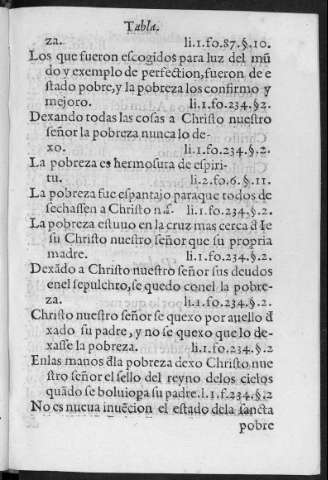 Tabla.
za. li.1.fo.87.§.10.
Los que fueron escogidos para luz del mũ
do y exemplo de perfection, fueron de e
stado pobre, y la pobreza los confirmo y
mejoro. li.1.fo.234.§2.
Dexando todas las cosas a Christo nuestro
señor la pobreza nunca lo de-
xo. li.1.fo.234.§.2.
La pobreza es hermosura de espiri-
tu. li.2.fo.6.§.11.
La pobreza fue espantajo paraque todos de
sechassen a Christo n.s. li.1.fo.234.§.2.
La pobreza estuuo en la cruz mas cerca d̃ Ie
su Christo nuestro señor que su propria
madre. li.1.fo.234.§.2.
Dexãdo a Christo nuestro señor sus deudos
enel sepulchro, se quedo conel la pobre-
za. li.1.fo.234.§.2.
Christo nuestro señor se quexo por auello d̃
xado su padre, y no se quexo que lo de-
xasse la pobreza. li.1.fo.234.§.2
Enlas manos d̃la pobreza dexo Christo nue
stro señor el sello del reyno delos cielos
quãdo se boluio pa su padre.l.1.f.234.§.2
No es nueua inuẽcion el estado dela sancta
pobre